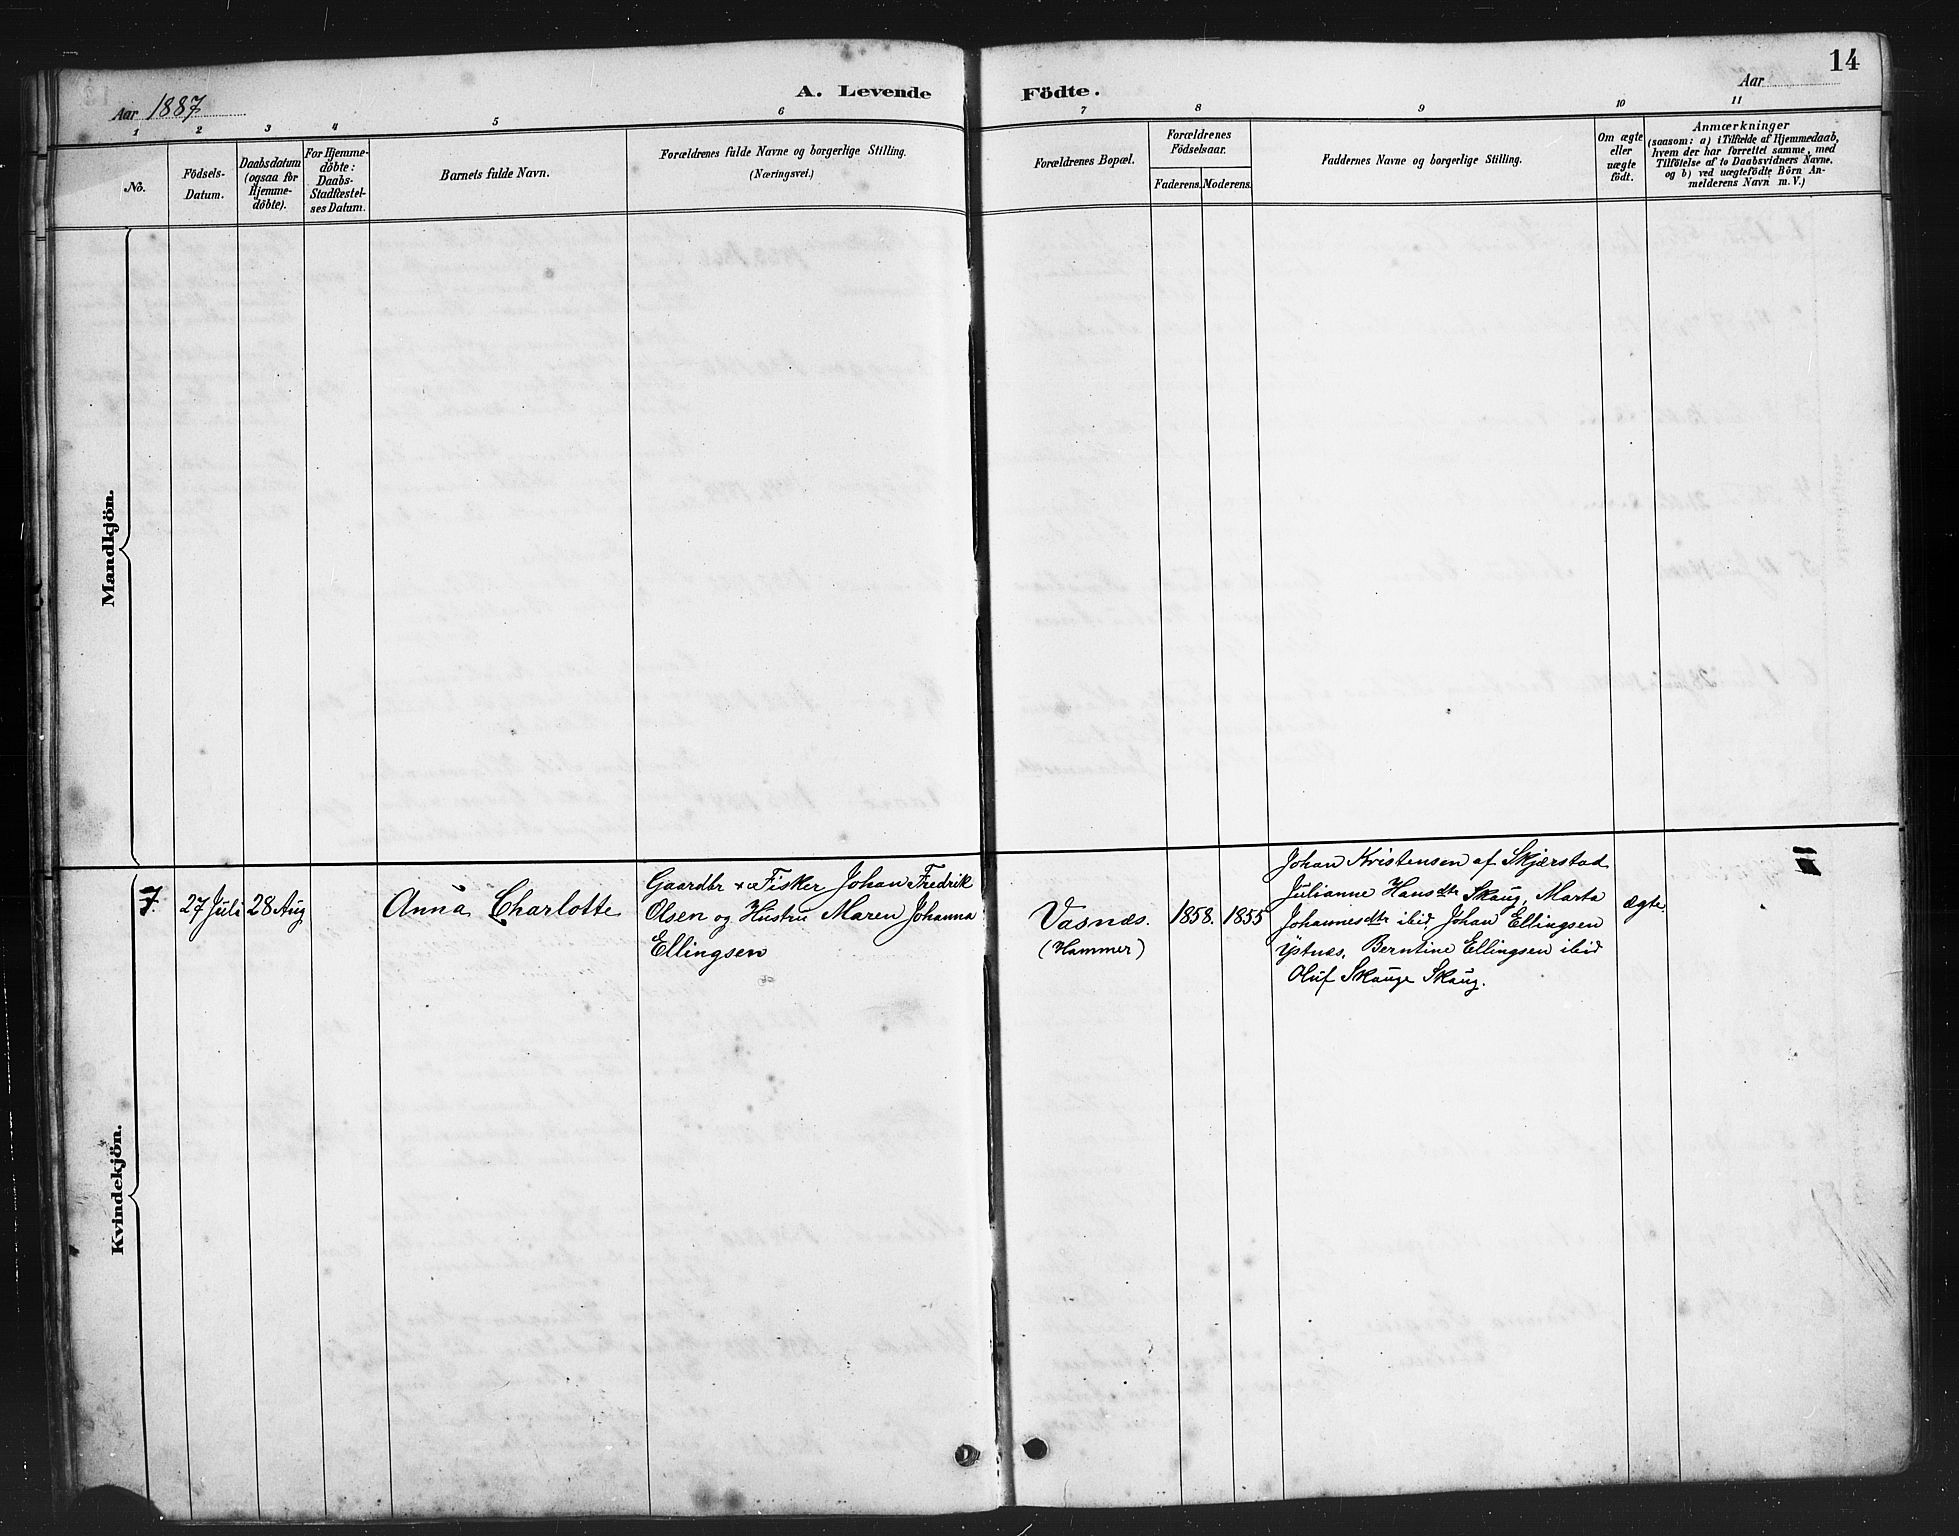 14
Aar 1887
A. Levende Födte.
Aar
1 2 3 4 5 6 7 8 9 10 11
No.
Födsels-
Datum.
Daabsdatum
(ogsaa for
Hjemme-
döbte).
For Hjemme-
döbte:
Daabs-
Stadfæstel-
ses Datum.
Barnets fulde Navn.
Forældrenes fulde Navne og borgerlige Stilling.
(Næringsvei.)
Forældrenes Bopæl.
Forældrenes
Födselsaar.
Faderens. Moderens.
Faddernes Navne og borgerlige Stilling.
Om ægte
eller
uægte
födt.
Anmærkninger
(saasom: a) i Tilfælde af Hjemmedaab,
hvem der har forrettet samme, med
Tilföielse af to Daabsvidners Navne.
og b) ved uægtefödte Börn An-
melderens Navn m. V.)
Mandkjön.
Kvindekjön.
7.
27 Juli
28 Aug
Anna Charlotte
Gaardbr Fisker Johan Fredrik
Olsen og Hustru Maren Johanna
Ellingsen
Vasnæs.
(Hammer)
1858.
1855
Johan Kristensen af Skjærstad
Julianne Hansdtr Skaug, Marta
Johannesdtr ibid, Johan Ellingsen
Ystnæs, Berntine Ellingsen ibid
Oluf Skauge Skaug.
ægte.